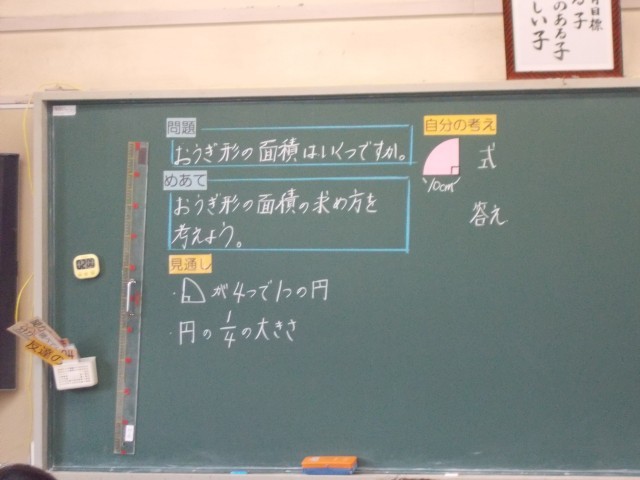 標
のある子
しい子
問題
おうぎ形の面積はいくつですか。
めあて
おうぎ形の面積の求め方を
考えよう。
見通し
・が4つで1つの円
・円の1/4の大きさ
自分の考え
10cm
式
答え